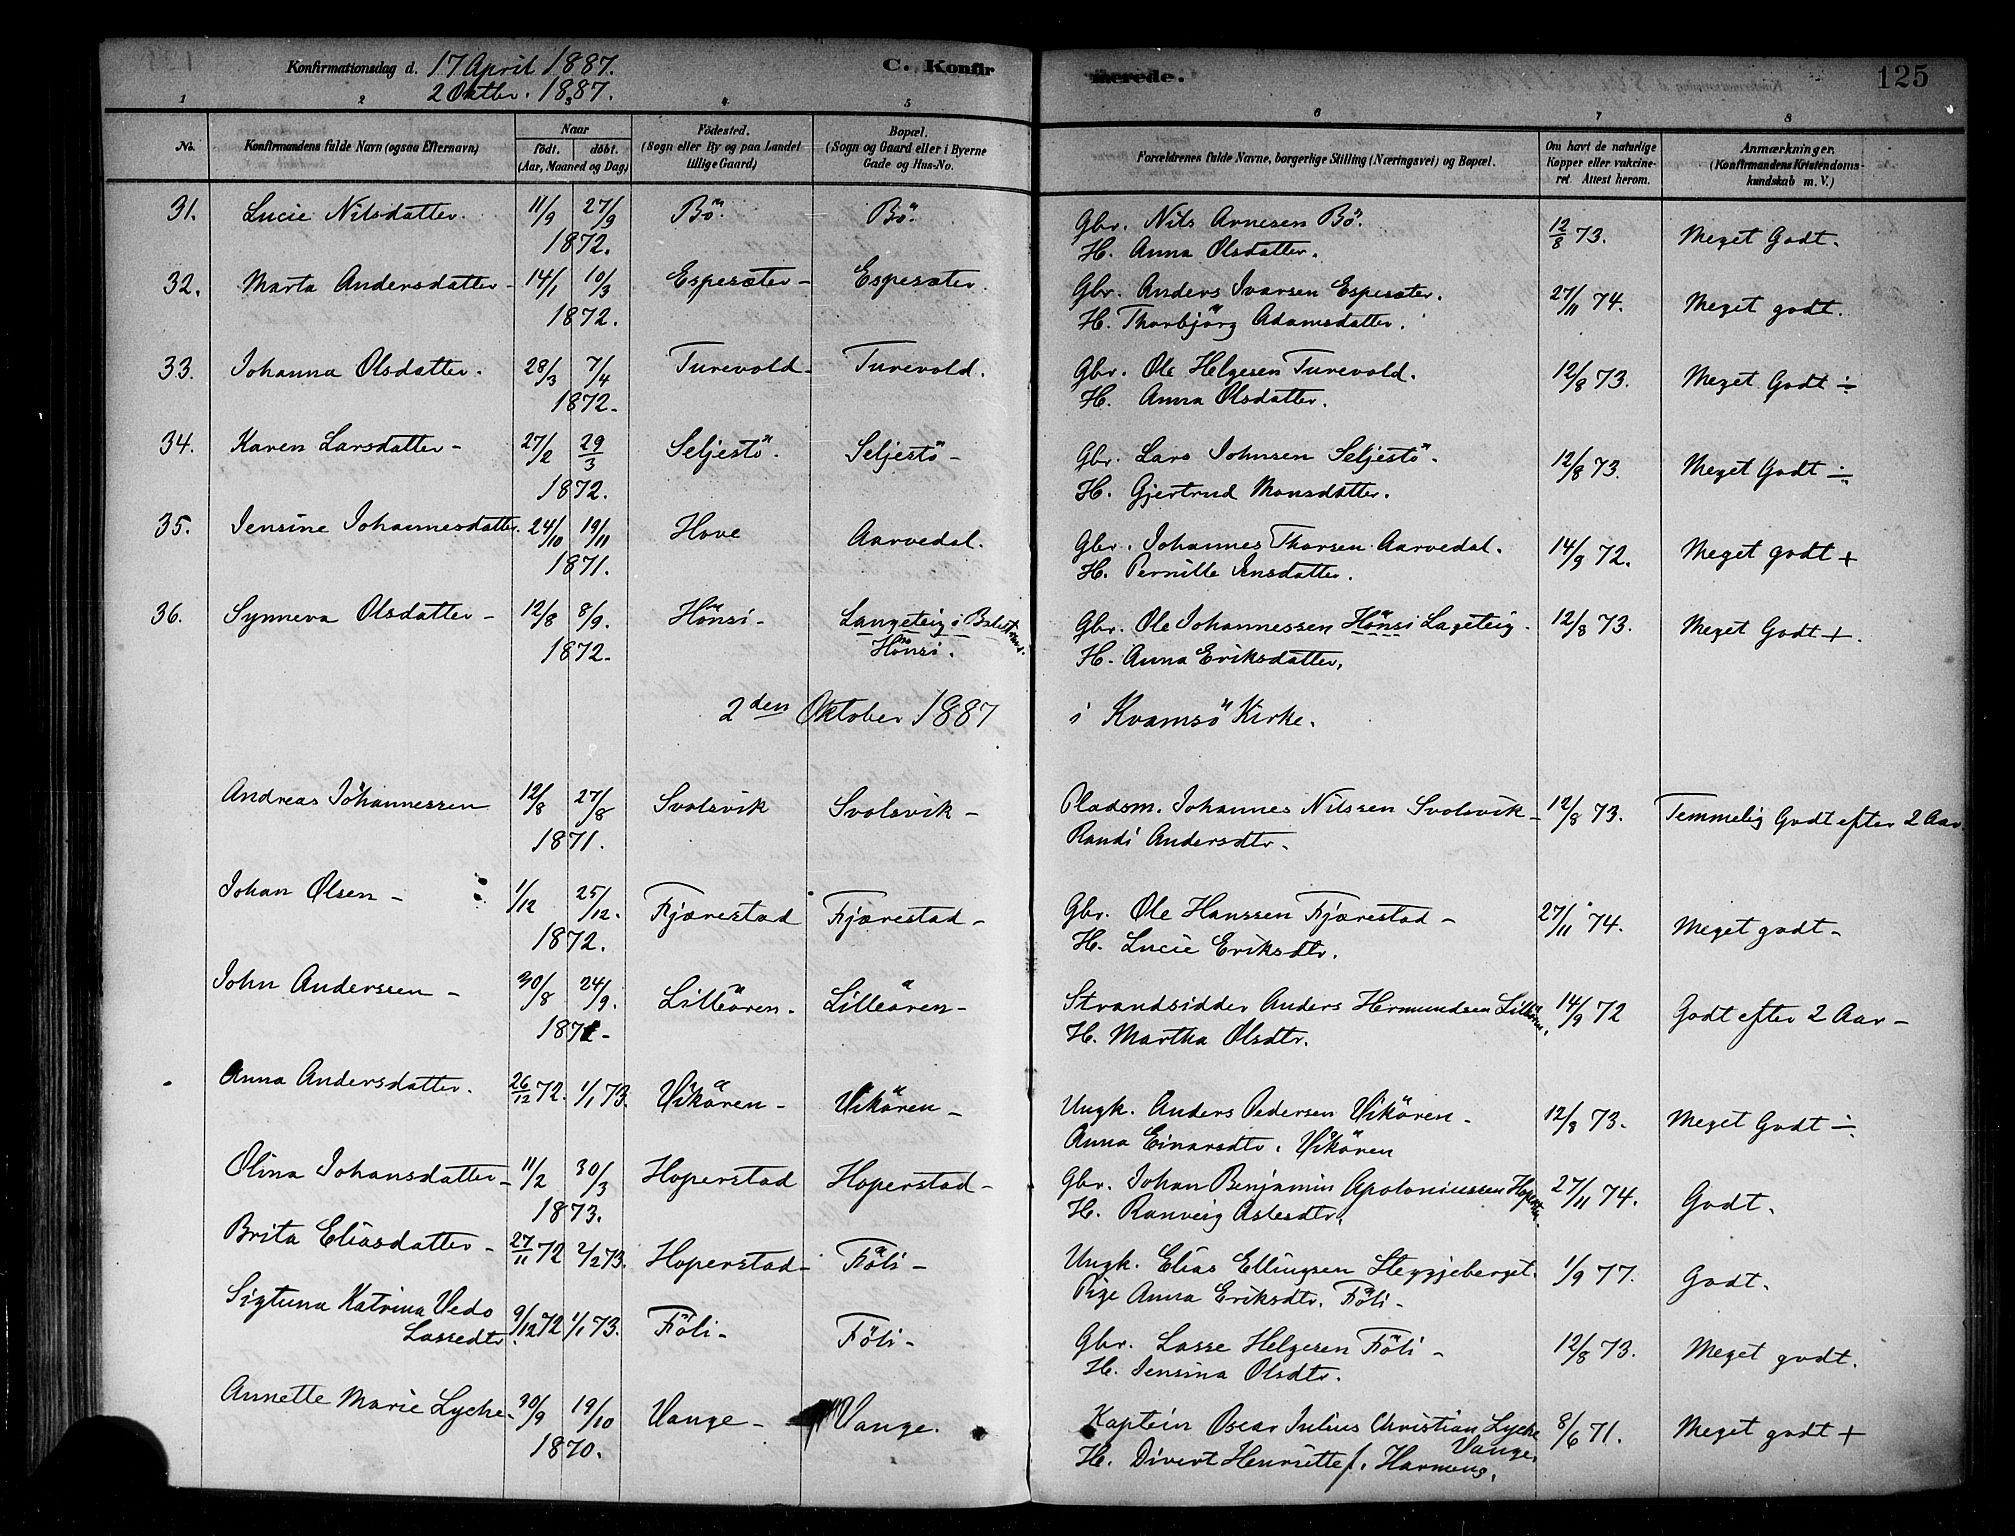 Konfirmationsdag d. 17 April 1887.
2 Oktbr. 1887.
C. Konfirmerede.
125
1 2 3 4 5 6 7 8
No.
Konfirmandens fulde Navn (ogsaa Efternavn)
Naar
født. døbt.
(Aar, Maaned og Dag)
Fødested.
(Sogn eller By og paa Landet
tillige Gaard)
Bopæl.
(Sogn og Gaard eller i Byerne
Gade og Hus-No.
Forældrenes fulde Navne, borgerlige Stilling (Næringsvei) og Bopæl.
Om havt de naturlige
Kopper eller vakcine-
ret. Attest herom.
Anmærkninger.
(Konfirmandens Kristendoms-
kundskab m. V.)
31. Lucie Nilsdatter. 11/9 27/9 Bö. Bö. Gbr. Nils Arnesen Bö. 12/8 73. Meget Godt.
1872. H. Anna Olsdatter.
32. Marta Andersdatter - 14/1 10/3 Espesæter - Espesæter. Gbr. Anders Ivarsen Espesæter. 27/11 74. Meget godt.
1872. H. Thorbjörg Adamsdatter.
33. Johanna Olsdatter. 28/3 7/4 Turevold - Turevold. Gbr. Ole Helgesen Turevold. 12/8 73. Meget Godt ÷
1872. H. Anna Olsdatter.
34. Karen Larsdatter - 27/2 29/3 Seljestö. Seljestö - Gbr. Lars Johnsen Seljestö. 12/8 73. Meget Godt ÷
1872. H. Gjertrud Monsdatter.
35. Jensine Johannesdatter. 24/10 19/11 Hove Aarvedal. Gbr. Johannes Thorsen Aarvedal. 14/9 72. Meget godt +
1871. H. Pernille Jensdatter.
36. Synneva Olsdatter - 12/8 8/9. Hönsi - Langeteig i Balestrand. Gbr. Ole Johannessen Hönsi Lageteig. 12/8 73. Meget Godt +.
1872. Hönsi. H. Anna Eriksdatter.
2den Oktober 1887 i Kvamsö Kirke.
Andreas Johannessen 12/8 27/8 Svolsvik Svolsvik - Pladsm. Johannes Nilssen Svolsvik - 12/8 73. Temmelig Godt efter 2 Aar.
1871. Randi Andersdtr.
Johan Olsen - 1/12 25/12. Fjærestad Fjærestad - Gbr. Ole Hanssen Fjærestad - 27/11 74. Meget godt -
1872. H. Lucie Eriksdtr.
John Anderssen - 30/8 24/9. Lilleören. Lilleören - Strandsidder Anders Hermundsen Lilleören. 14/9 72 Godt efter 2 Aar -
1871 - H. Martha Olsdtr.
Anna Andersdatter. 26/12 72. 1/1 73. Vikören - Vikören - Ungk. Anders Pedersen Vikören - 12/8 73. Meget Godt ÷
Anna Einarsdtr. Vikören
Olina Johansdatter - 11/2 30/3 Hoperstad Hoperstad - Gbr. Johan Benjamin Apoloniussen Hoperstad. 27/11 74. Godt.
1873. H. Ranveig Aslesdtr.
Brita Eliasdatter - 27/11 72 2/2 73. Hoperstad - Föli - Ungk. Elias Ellingsen Steggjeberget. 1/9 77. Godt.
Pige Anna Eriksdtr. Föli -
Sigtuna Katrina Vedo 9/12 72 1/1 73. Föli - Föli - Gbr. Lasse Helgesen Föli - 12/8 73. Meget godt.
Lassedtr. H. Jensina Olsdtr.
Annette Marie Lyche - 30/9 19/10 Vange - Vange. Kaptein Oscar Julius Christian Lyche 8/6 71. Meget godt +
Vange.
1870. H. Divert Henriette f. Harmens.